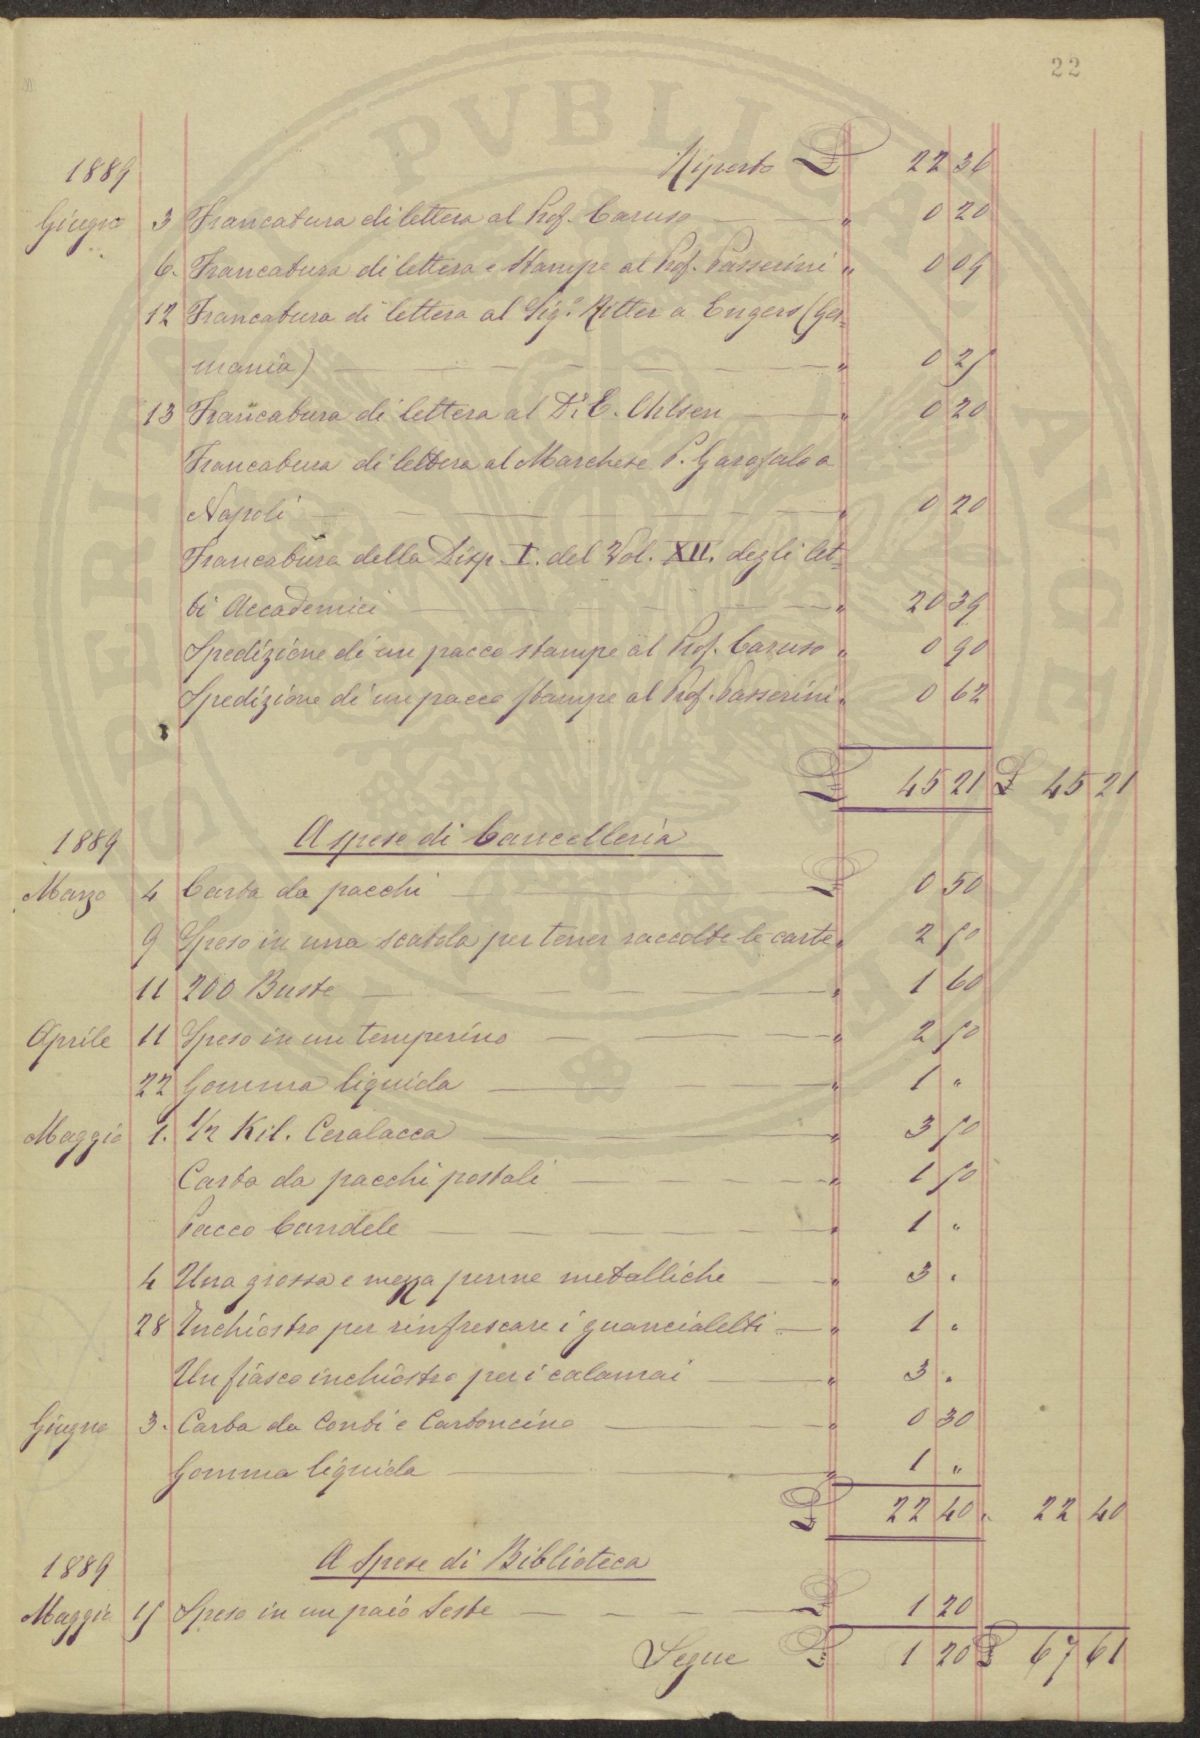 22
1889 Riporto £ 22 36
Giugno 3 Francatura di lettera al Prof. Caruso — " 0 20
6. Francatura di lettera e Stampe al Prof. Passerini " 0 09
12 Francatura di lettera al Sig.r Ritter a Engers (Ger=
mania) — " 0 25
13 Francatura di lettera al D.r E. Ohlsen — " 0 20
Francatura di lettera al Marchese P. Garofalo a
Napoli — " 0 20
Francatura della Disp. I. del Vol. XII. degli At=
ti Accademici — " 20 39
Spedizione di un pacco stampe al Prof. Caruso " 0 90
Spedizione di un pacco stampe al Prof. Passerini " 0 62
£ 45 21 £ 45 21
1889 A spese di Cancelleria
Marzo 4 Carta da pacchi — £ 0 50
9 Speso in una scatola per tener raccolte le carte " 2 50
11 200 Buste — " 1 60
Aprile 11 Speso in un temperino — " 2 50
22 Gomma liquida — " 1 "
Maggio 1. 1/2 Kil. Ceralacca — " 3 50
Carta da pacchi postali — " 1 50
Pacco Candele — " 1 "
4 Una grossa e mezza penne metalliche — " 3 "
28 Inchiostro per rinfrescare i guancialetti — " 1 "
Un fiasco inchiostro per i calamai — " 3 "
Giugno 3. Carta da Conti e Cartoncino — " 0 30
Gomma liquida — " 1 "
£ 22 40 " 22 40
1889 A Spese di Biblioteca
Maggio 15 Speso in un paio Seste — £ 1 20
Segue £ 1 20 £ 67 61